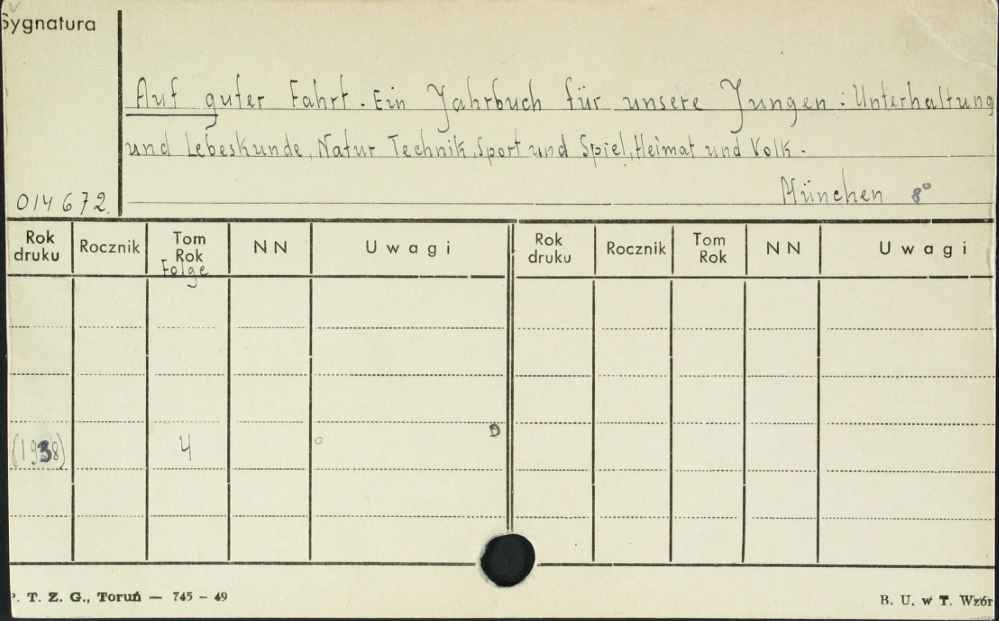 Sygnatura
Auf guter Fahrt. Ein Jahrbuch für unsere Jungen: Unterhaltung
und Lebeskunde, Natur Technik, Sport und Spiel, Heimat und Volk.
014672 München 8°
Rok druku Rocznik Tom Rok Folge NN Uwagi Rok druku Rocznik Tom Rok NN Uwagi
(1938) 4 D
P. T. Z. G., Toruń — 745 – 49 B. U. w T. Wzór